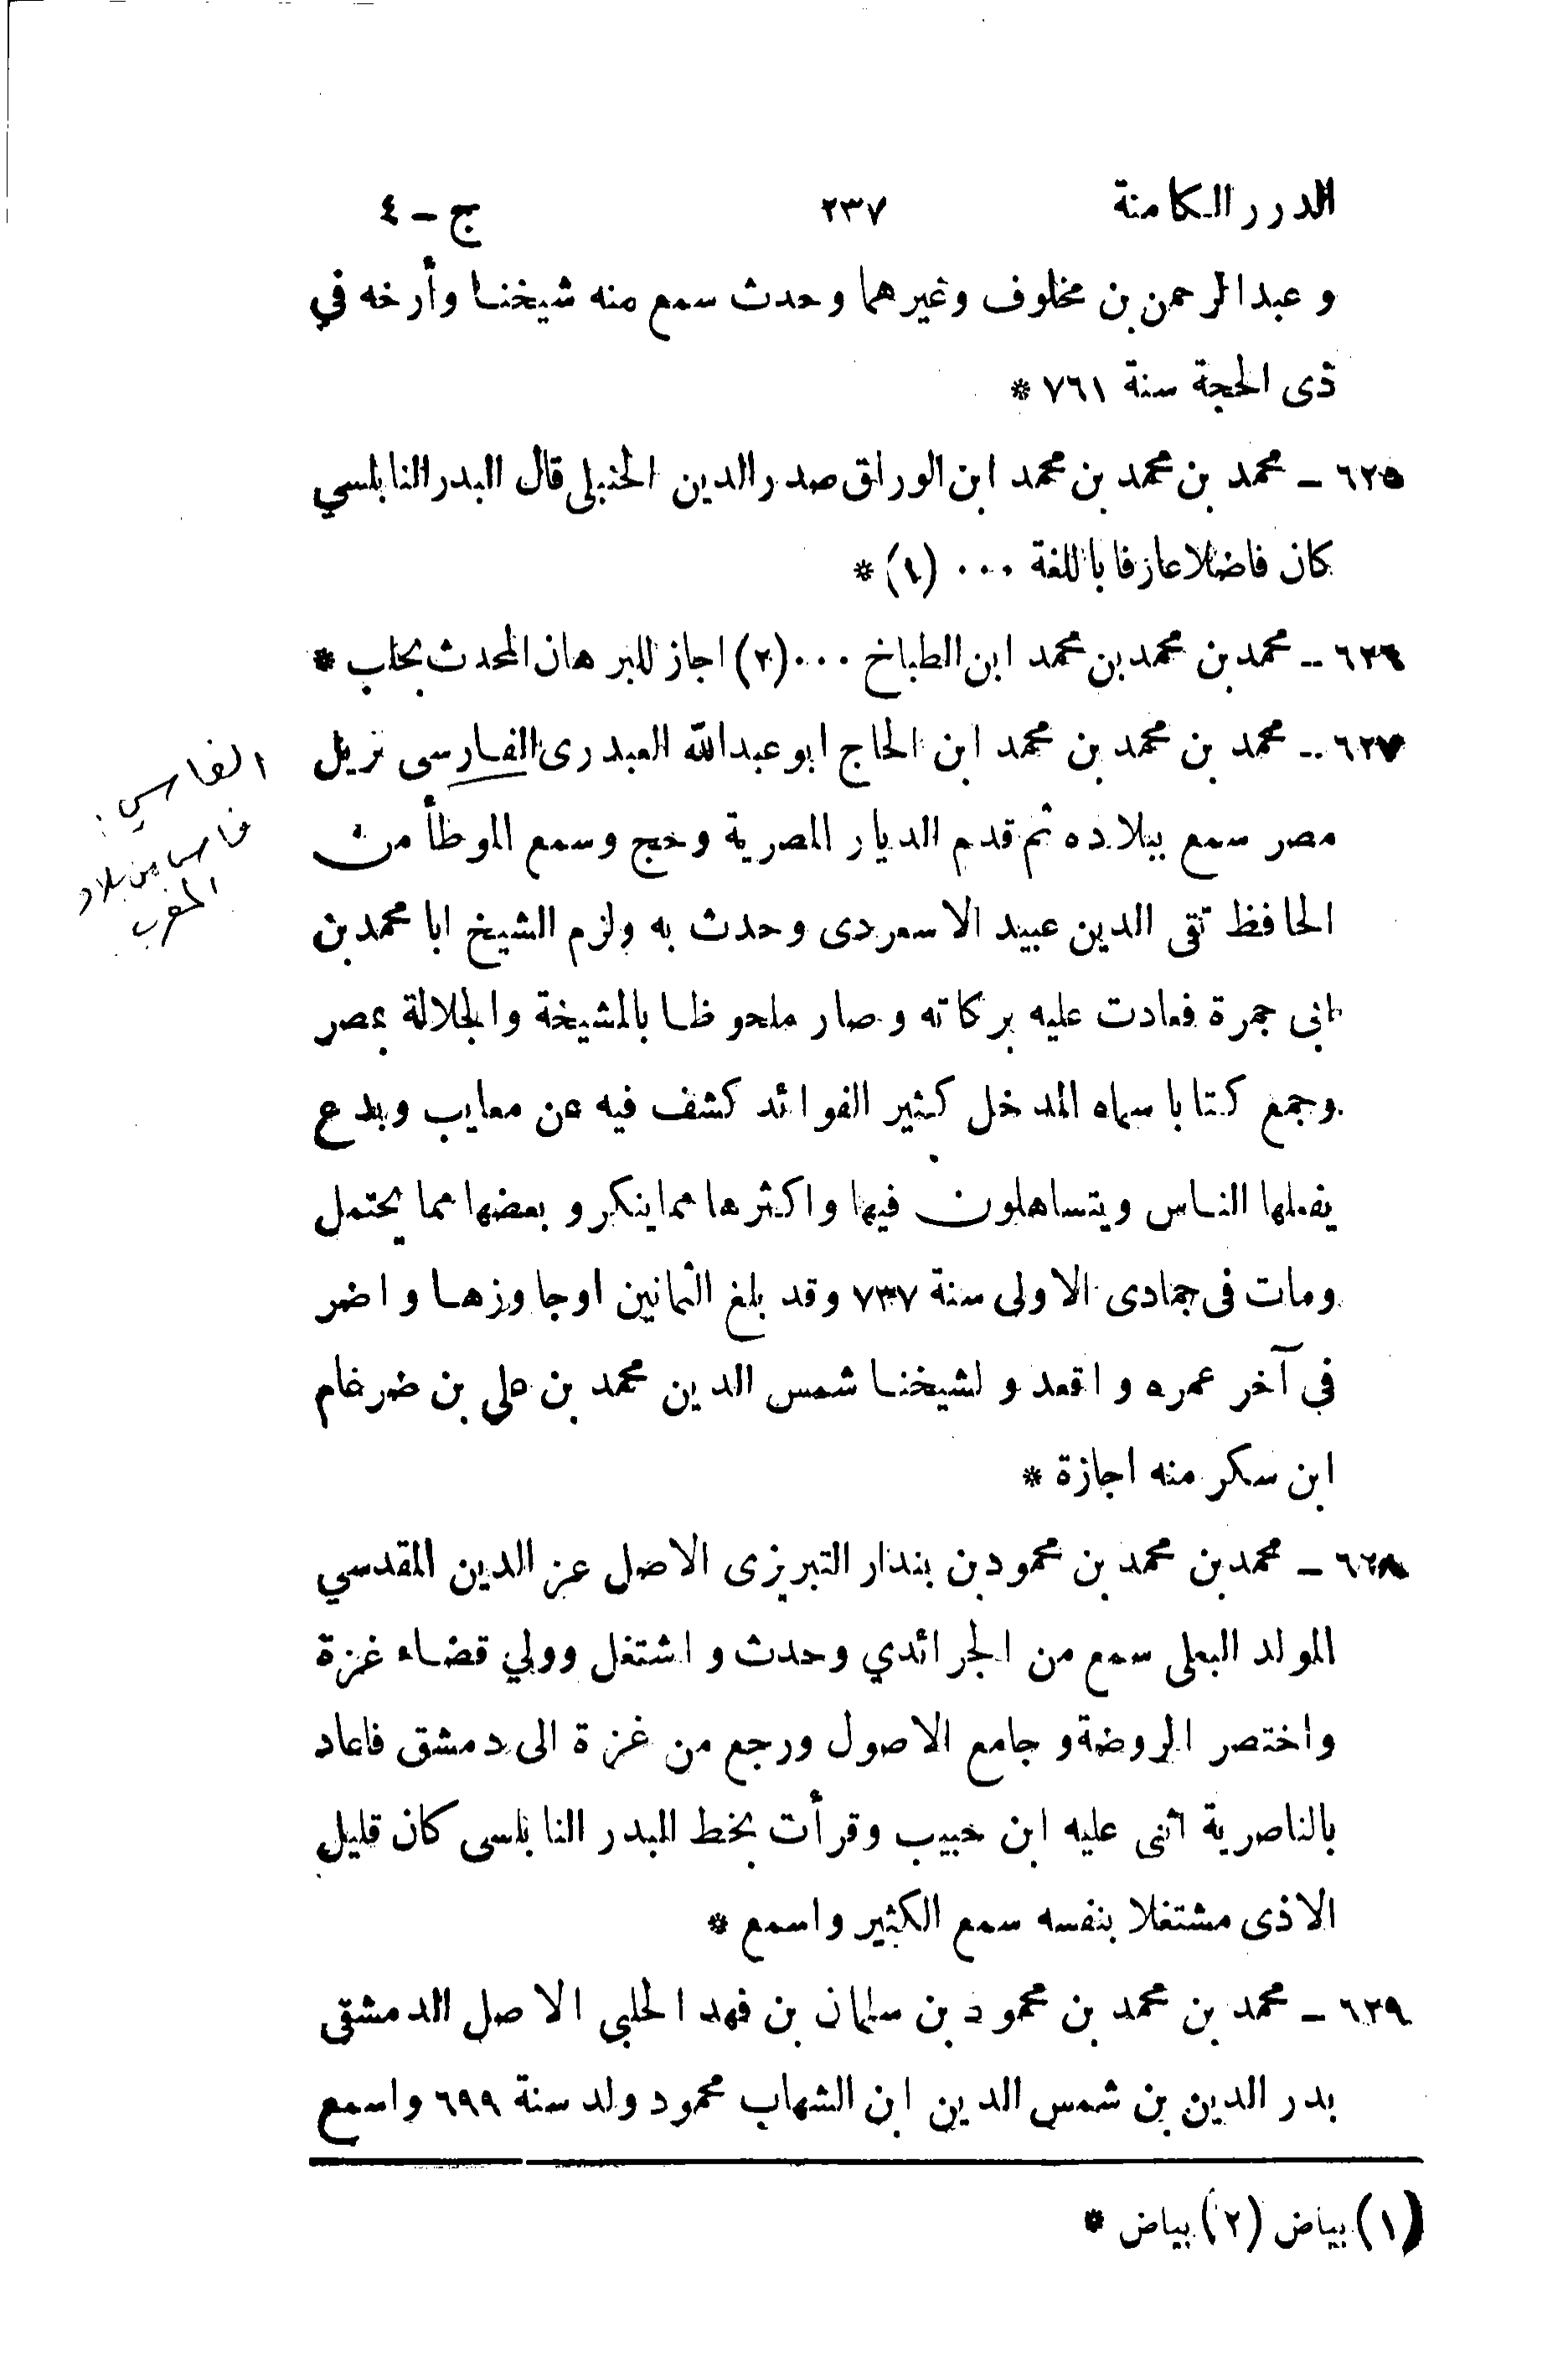 الدرر الكامنة ٢٣٧ ج – ٤
و عبد الرحمن بن مخلوف وغيرهما وحدث سمع منه شيخنا وأرخه في
ذى الحجة سنة ٧٦١ *
٦٢٥ – محمد بن محمد بن محمد ابن الوراق صدر الدين الحنبلى قال البدر النابلسي
كان فاضلا عارفا باللغة ٠٠٠ (١) *
٦٢٦ – محمد بن محمد بن محمد ابن الطباخ ٠٠٠ (٢) اجاز للبرهان المحدث بحلب *
٦٢٧ – محمد بن محمد بن محمد ابن الحاج ابو عبد الله العبدرى الفارسى نزيل
مصر سمع ببلاده ثم قدم الديار المصرية وحج وسمع الموطأ من
الحافظ تقى الدين عبيد الاسعردى وحدث به ولزم الشيخ ابا محمد بن
ابى جمرة فعادت عليه بركاته وصار ملحوظا بالمشيخة والجلالة بمصر
وجمع كتابا سماه المدخل كثير الفوائد كشف فيه عن معايب وبدع
يفعلها الناس ويتساهلون فيها واكثرها مما ينكر وبعضها مما يحتمل
ومات فى جمادى الاولى سنة ٧٣٧ وقد بلغ الثمانين اوجاوزها واضر
في آخر عمره واقعد ولشيخنا شمس الدين محمد بن على بن ضرغام
ابن سكر منه اجازة *
٦٢٨ – محمد بن محمد بن محمود بن بندار التبريزى الاصل عز الدين المقدسي
المولد البعلى سمع من الجرائدي وحدث واشتغل وولي قضاء غزة
واختصر الروضة و جامع الاصول ورجع من غزة الى دمشق فاعاد
بالناصرية اثنى عليه ابن حبيب وقرأت بخط البدر النابلسى كان قليل
الاذى مشتغلا بنفسه سمع الكثير واسمع *
٦٢٩ – محمد بن محمد بن محمود بن سلمان بن فهد الحلبي الاصل الدمشقى
بدر الدين بن شمس الدين ابن الشهاب محمود ولد سنة ٦٩٩ واسمع
(١) بياض (٢) بياض *
الفاسي:
فاس من بلاد
المغرب